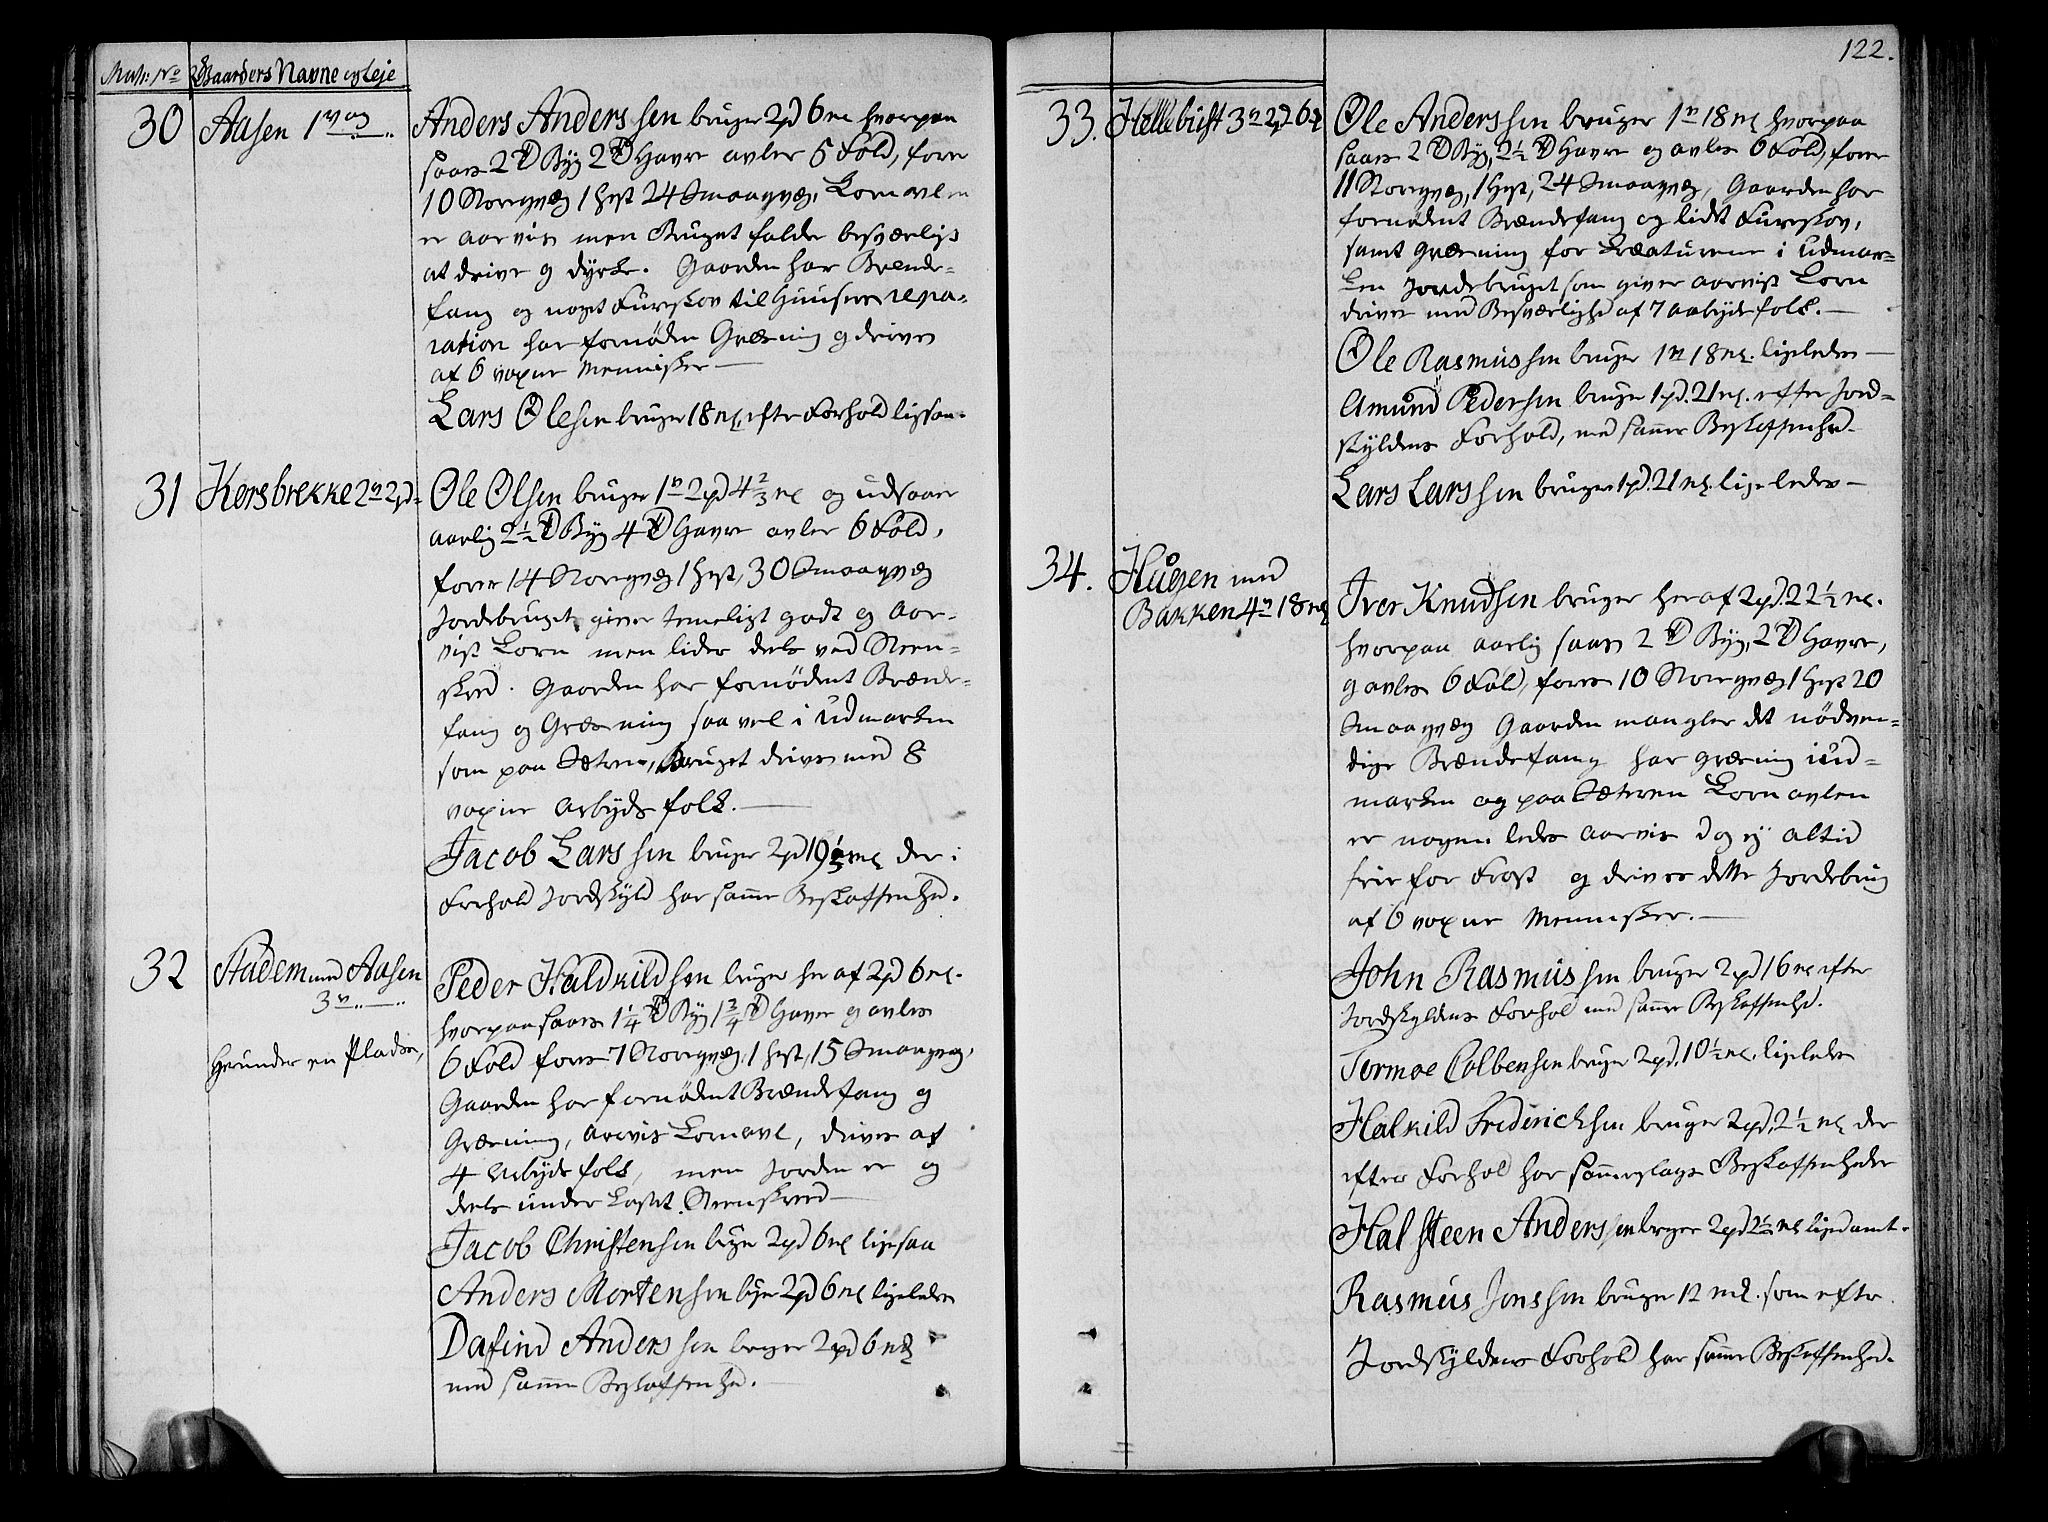 Matr: No Gaarders Navne og Leje
30 Aasen 1 v og
Anders Anderssen bruger 2pd 6 mk hvorpaa
saaes 2 Td Byg 2 Td Havre avler 5 Fold, foere
10 Storegvæg 1 Hest 24 Smaagvæg, Kornavlen
er aarvis men Bruget falder besværligt
at drive og dyrke. Gaarden har Brænde-
fang og noget Furrskov til Huusenes repa-
ration har fornøden Græsning og drives
af 6 voxne Mennisker —
Lars Olesen bruger 18 mk. efter Forhold ligesaa.
31 Kersbrekke 2 v 2 pd
Ole Olsen bruger 1 v 2pd 4 2/3 mk og udsaaer
aarlig 2 1/2 Td Byg 4 Td Havre avler 6 Fold,
foere 14 Storegvæg 1 Hest, 30 Smaagvæg
Jordebruget giver temeligt godt og Aar-
vist Korn men lider dels ved Steen-
skred. Gaarden har fornødent Brænde-
fang og Græsning saavel i Udmarken
som paa Sætren, Bruget drives med 8
voxne Arbydsfolk. —
Jacob Larssen bruger 2pd 19 1/3 mk der i
Forhold Jordskyld har samme Beskaffenhed.
32 Stadem med Aasen
3 v
Herunder en Pladser,
Peder Haldkildsen bruger her af 2pd 6 mk.
hvorpaa saaes 1 1/4 Td Byg 1 3/4 Td Havre og avles
6 Fold foeres 7 Storegvæg, 1 Hest, 15 Smaagvæg,
Gaarden har fornødent Brændefang og
Græsning, Aarvis Kornavl, drives af
4 Arbydsfolk, men Jorden er og
deels under kastet Steenskred —
Jacob Christensen bruger 2pd 6 mk ligesaa
Anders Mortensen bruger 2pd 6 mk ligeledes
Dafind Anderssen bruger 2pd 6 mk
med samme Beskaffenhed.
122.
33. Hellebust 3 v 2pd 6 mk
Ole Anderssen bruger 1 v 18 mk hvorpaa
saaes 2 Td Byg, 2 1/2 Td Havre og avles 6 Fold, foeres
11 Storegvæg, 1 Hest, 24 Smaagvæg, Gaarden har
fornødent Brændefang og lidet Furrskov,
samt Græsning for Kreaturene i Udmar-
ken Jordebruget som giver aarvist Korn
drives med Besværlighed af 7 Arbydsfolk. —
Ole Rasmussen bruger 1 v 18 mk. ligeledes —
Amund Pedersen bruger 1pd. 21 mk. efter Jord-
skyldens Forhold, med samme Beskaffenhed
Lars Larssen bruger 1pd. 21 mk. ligeledes —
34. Hugen med
Bakken 4 v 18 mk
Iver Knudsen bruger her af 2pd. 22 1/2 mk.
hvorpaa aarlig saaes 2 Td Byg, 2 Td Havre,
og avles 6 Fold, foeres 10 Storegvæg 1 Hest 20
Smaagvæg Gaarden mangler det nødven-
dige Brændefang har Græsning i Ud-
marken og paa Sæteren Kornavlen
er nogenledes Aarvis dog ej altid
frie for Frost og drives dette Jordebrug
af 6 voxne Mennisker. —
John Rasmussen bruger 2pd 16 mk efter
Jordskyldens Forhold med samme Beskaffenhed.
Tormoe Colbensen bruger 2pd. 10 1/2 mk. ligeledes
Halkild Friderichsen bruger 2pd. 2 1/2 mk der
efter Forhold har sammeslags Beskaffenheder
Halsteen Anderssen bruger 2pd 2 1/2 mk ligedant.
Rasmus Jonssen bruger 12 mk. som efter
Jordskyldens Forhold har samme Beskaffenhed.